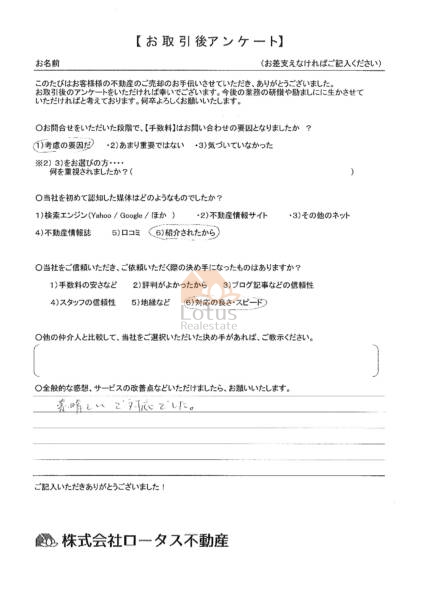 【お取引後アンケート】
お名前 （お差支えなければご記入ください）
このたびはお客様様の不動産のご売却のお手伝いさせていただき、ありがとうございました。
お取引後のアンケートをいただければ幸いでございます。今後の業務の研鑽や励ましにに生かさせて
いただければと考えております。何卒よろしくお願いいたします。
○お問合せをいただいた段階で、【手数料】はお問い合わせの要因となりましたか ？
1)考慮の要因だ ・2)あまり重要ではない ・3)気づいていなかった
※2) 3)をお選びの方・・・・
何を重視されましたか？( )
○当社を初めて認知した媒体はどのようなものでしたか？
1)検索エンジン(Yahoo / Google / ほか ) ・2)不動産情報サイト ・3)その他のネット
4)不動産情報誌 5)口コミ 6)紹介されたから
○当社をご信頼いただき、ご依頼いただく際の決め手になったものはありますか？
1)手数料の安さなど 2)評判がよかったから 3)ブログ記事などの信頼性
4)スタッフの信頼性 5)地縁など 6)対応の良さ・スピード
Lotus
Realestate
○他の仲介人と比較して、当社をご選択いただいた決め手があれば、ご教示ください。
○全般的な感想、サービスの改善点などいただけましたら、お願いいたします。
素晴しいご対応でした。
ご記入いただきありがとうございました！
株式会社ロータス不動産